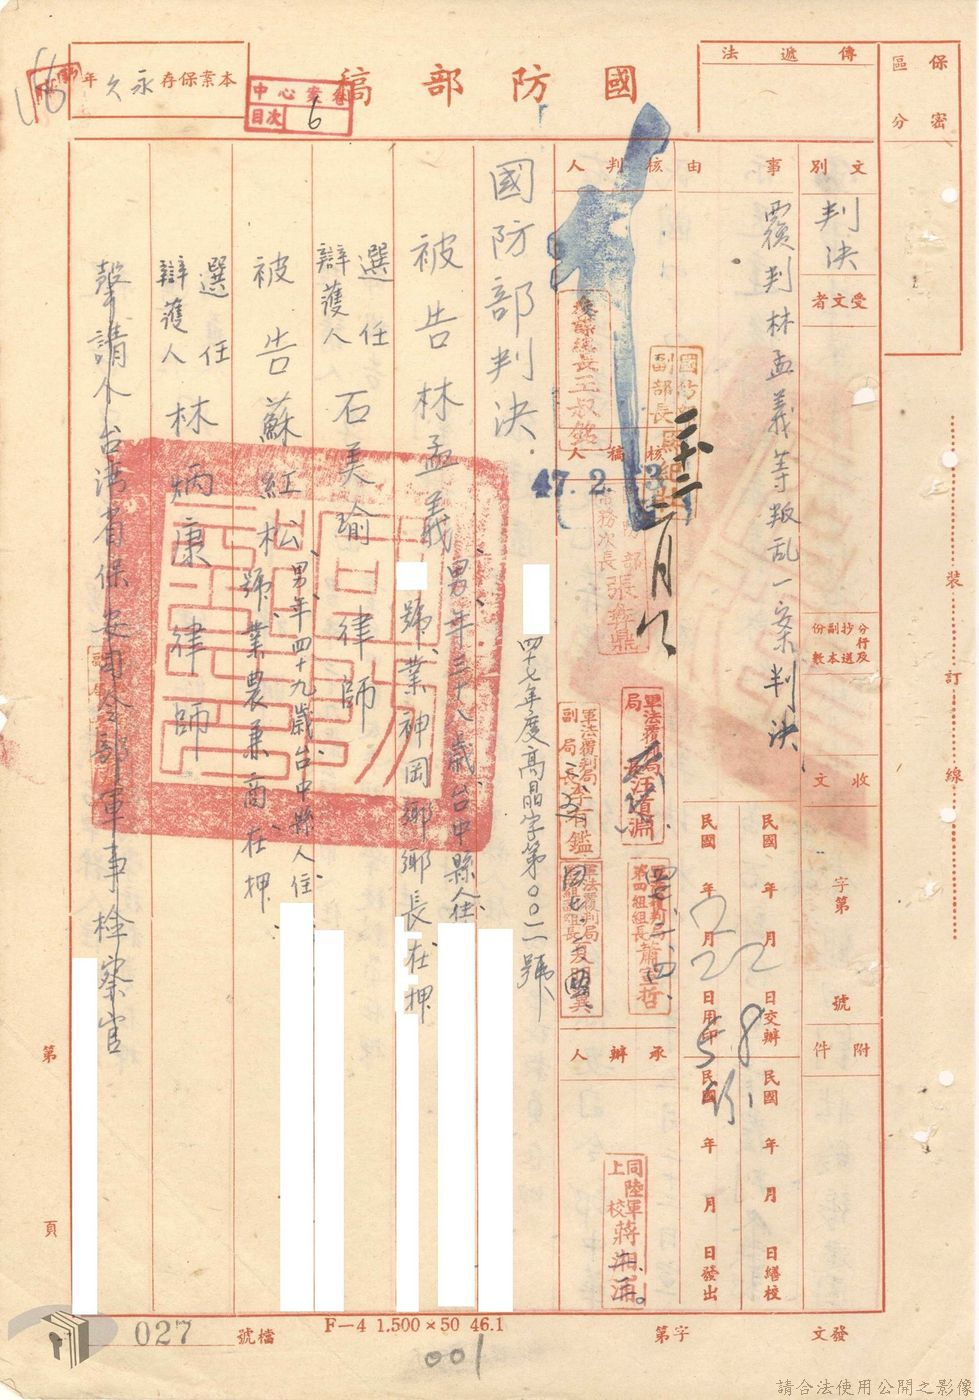 國防部稿
本業保存永久年
中心案卷
目次 6
傳遞法
保密
區分
文別
判決
受文者
事由
覆判林孟義等叛乱一案判決
核判人
核稿人
承辦人
分行及
抄送
副本
份數
收文
字第
號
附件
民國 年 月 日交辦
民國 年 月 日繕校
民國 年 月 日用印
民國 年 月 日發出
參謀總長王叔銘
副部長
47. 2.
常務次長張彝鼎
軍法覆判局局長汪道淵
軍法覆判局副局長
第四組組長蕭
同陸軍上校蔣湘浦
國防部判決
四十七年度高晶字第〇〇二號
被告林孟義 男、年三十八歲、台中縣人住
號、業神岡鄉鄉長在押
選任辯護人石美瑜律師
被告蘇紅松 男、年四十九歲、台中縣人、住
公 號、業農兼商、在押
選任辯護人林炳康律師
聲請人台湾省保安司令部軍事檢察官
裝訂線
第
頁
027
檔號
F—4 1.500×50 46.1
001
發文 字第
請合法使用公開之影像